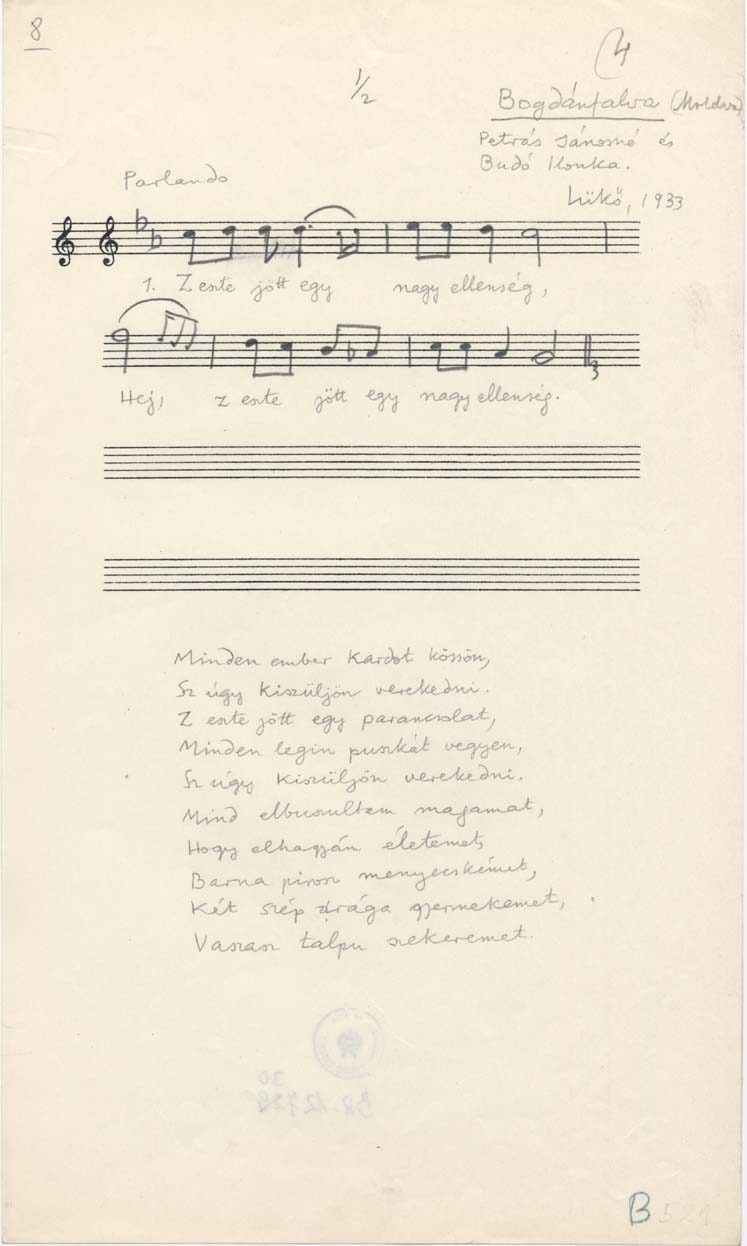 8
4
1/2
Bogdánfalva (Moldva)
Petrás Jánosné és
Budó Ilonka.
Lükő, 1933
Parlando
1. Z este jött egy nagy ellenség,
Hej, z este jött egy nagy ellenség.
Minden ember kardot kössön,
Sz úgy kiszüljön verekedni.
Z este jött egy parancsolat,
Minden legin puskát vegyen,
Sz úgy kiszüljön verekedni.
Mind elbusultam magamat,
Hogy elhagyám életemet,
Barna pirosz menyecskémet,
Két szép drága gyermekemet,
Vaszasz talpu szekeremet.
B 521